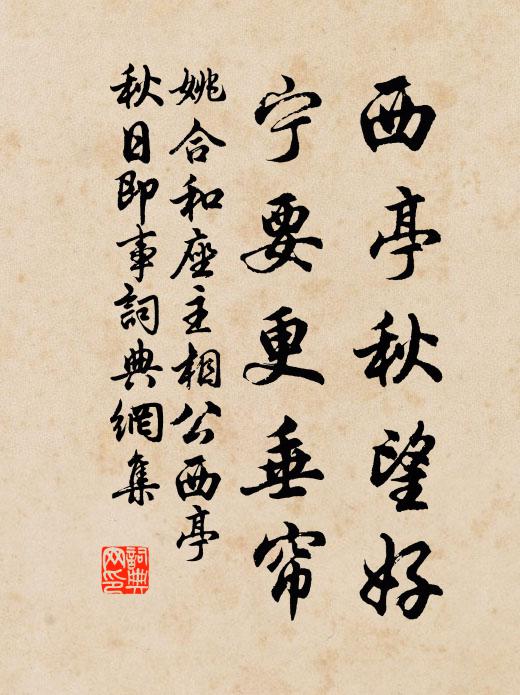 西亭秋望好
宁要更垂帘
姚合和座主相公西亭
秋日即事詞典網集
詞典
网印